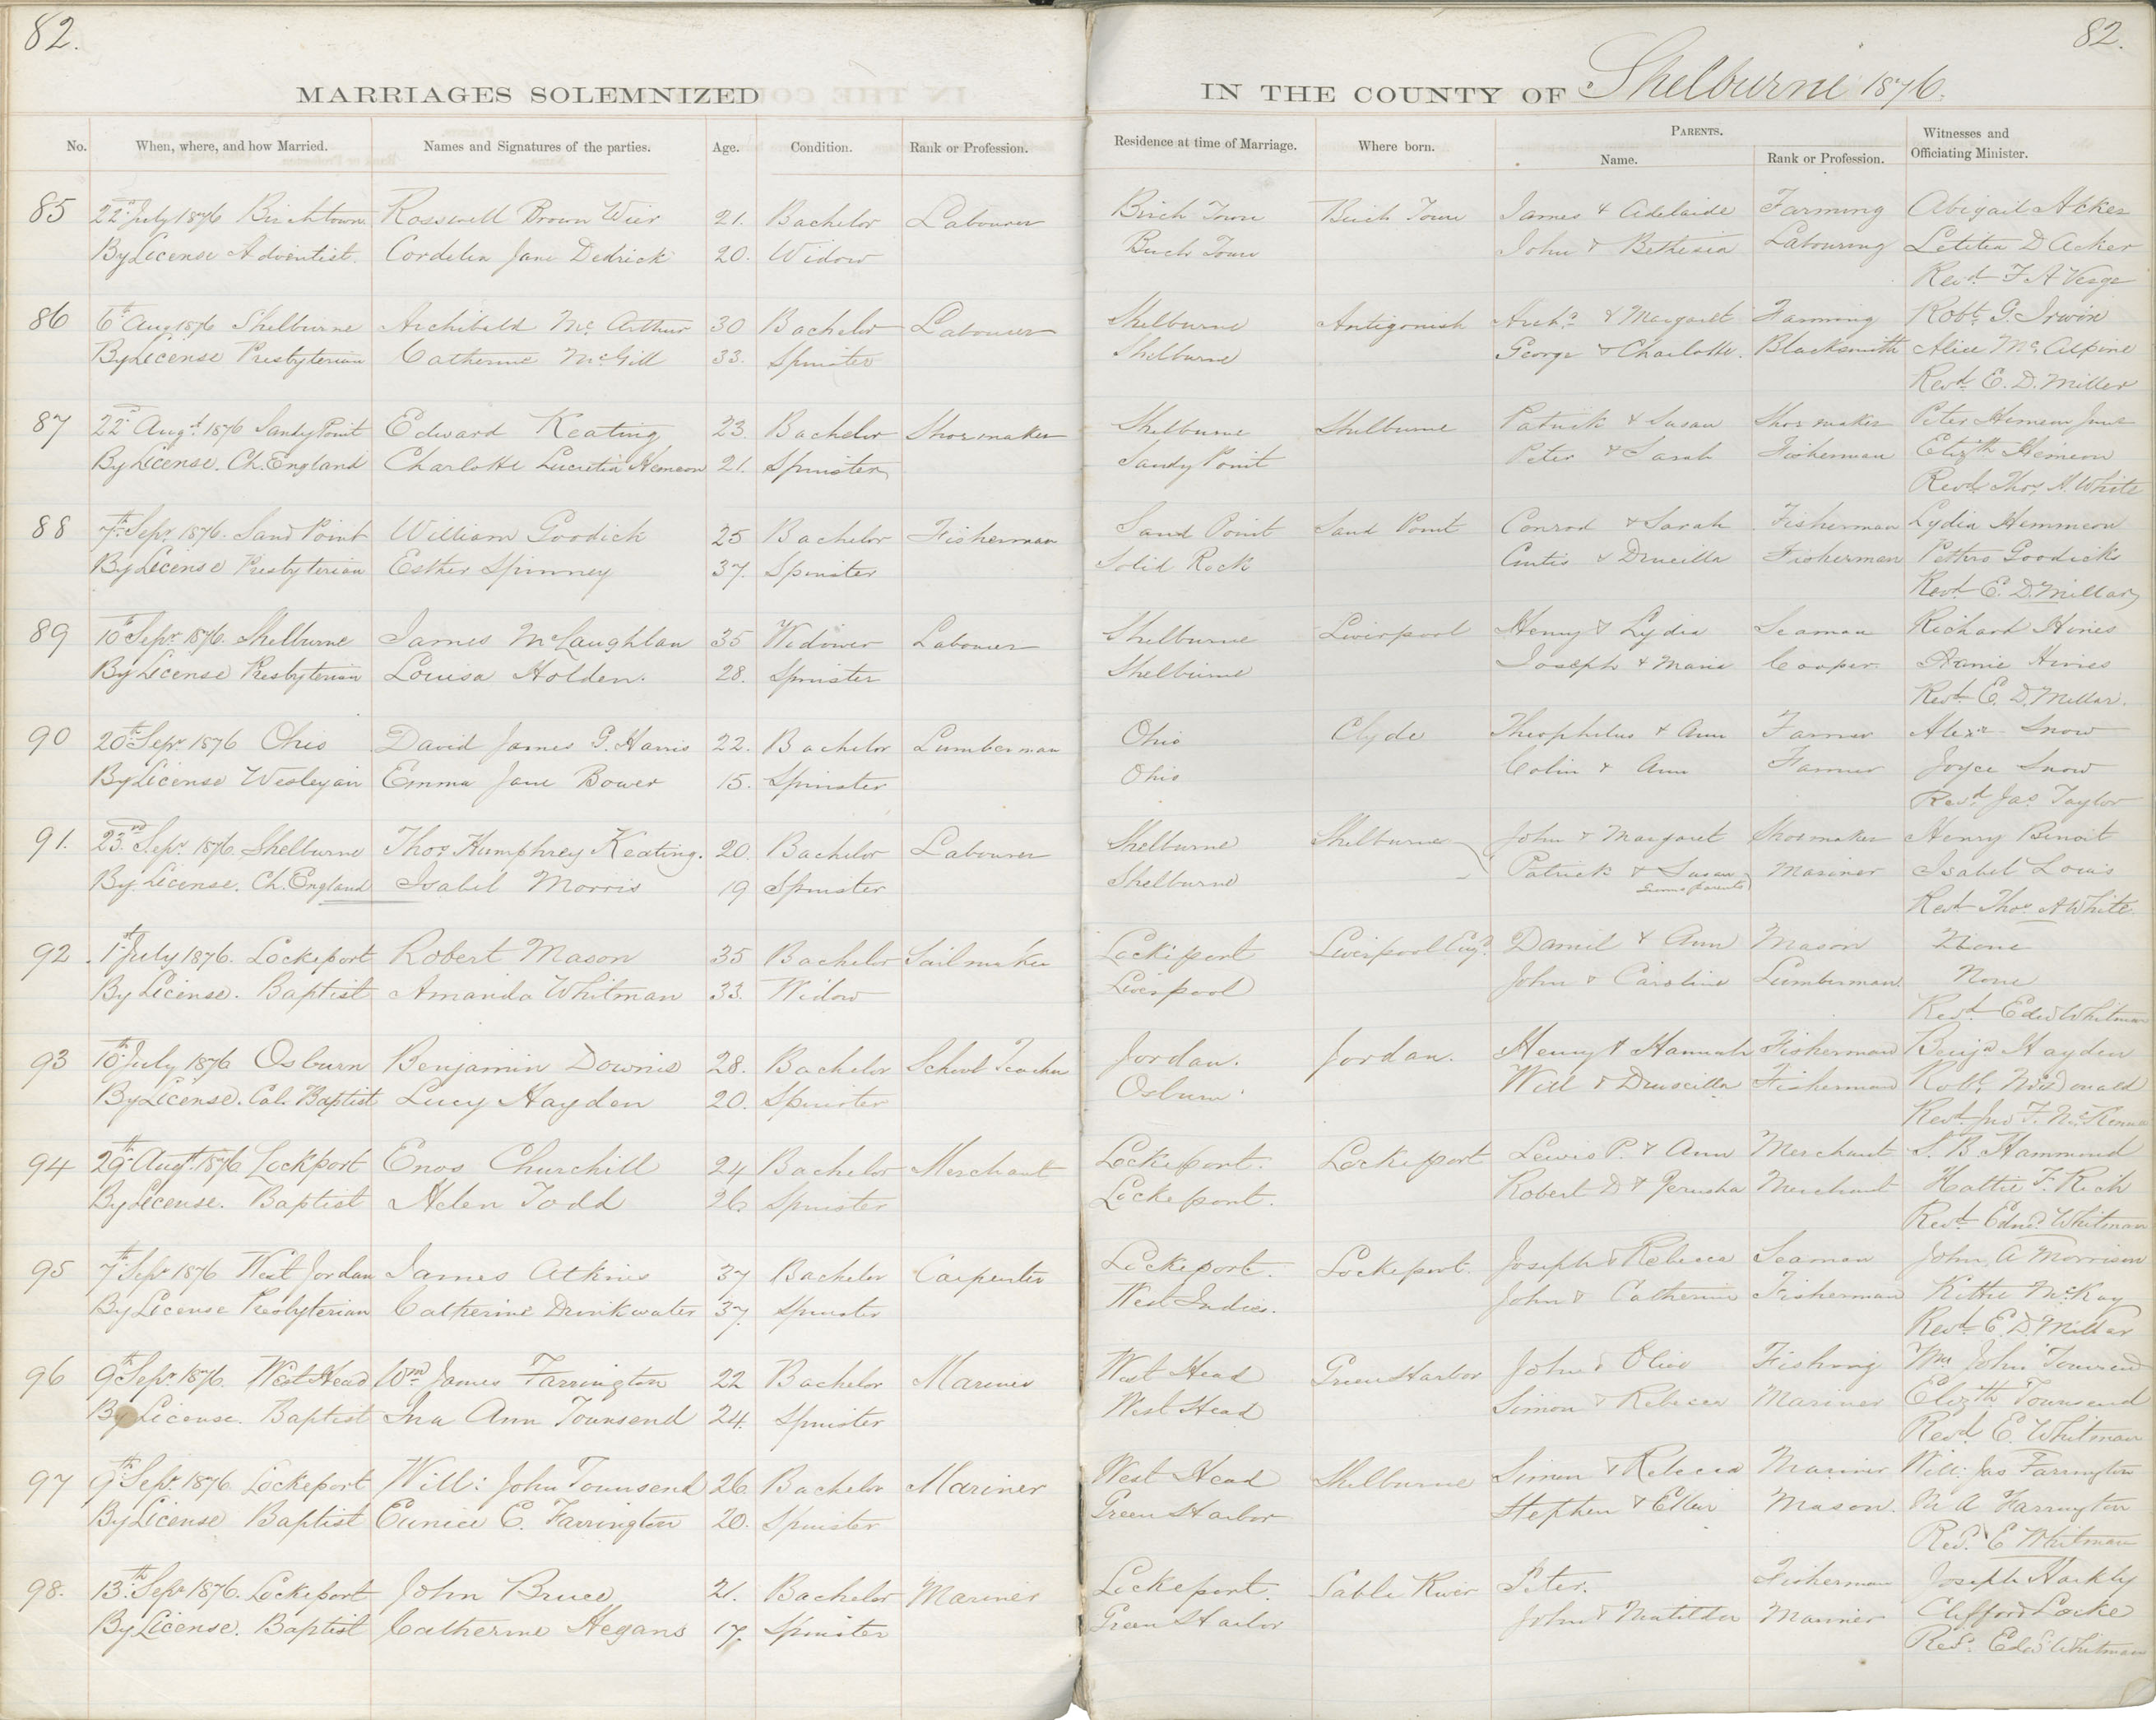 82.
MARRIAGES SOLEMNIZED
No. When, where, and how Married. Names and Signatures of the parties. Age. Condition. Rank or Profession.
85 22nd July 1876 Birchtown Rosswell Brown Wier 21. Bachelor Labourer
By License Adventist. Cordelia Jane Dedrick 20. Widow
86 6th Aug 1876 Shelburne Archibald Mc Arthur 30 Bachelor Labourer
By License Presbyterian Catherine McGill 33. Spinster
87 22nd Augt. 1876 Sandy Point Edward Keating 23 Bachelor Shoemaker
By License. Ch. England Charlotte Lucretia Hemeon 21. Spinster
88 7th Sepr. 1876. Sand Point William Goodick 25 Bachelor Fisherman
By License Presbyterian Esther Spinney 37. Spinster
89 10th Sepr. 1876. Shelburne James McLaughlan 35 Widower Labourer
By License Presbyterian Louisa Holden. 28. Spinster
90 20th Sepr 1876 Ohio David James G. Harris 22. Bachelor Lumberman
By License Wesleyan Emma Jane Bower 15. Spinster
91. 23rd Sepr 1876. Shelburne Thos. Humphrey Keating. 20. Bachelor Labourer
By License. Ch. England Isabel Morris 19 Spinster
92. 1st July 1876. Lockeport Robert Mason 35 Bachelor Sailmaker
By License. Baptist Amanda Whitman 33. Widow
93 10th July 1876 Osburn Benjamin Downie 28. Bachelor School Teacher
By License. Cal. Baptist Lucy Hayden 20. Spinster
94 29th Augt. 1876 Lockport Enos Churchill 24 Bachelor Merchant
By License. Baptist Helen Todd 26. Spinster
95 7th Sepr 1876 West Jordan James Atkins 37 Bachelor Carpenter
By License Presbyterian Catherine Drinkwater 37. Spinster
96 9th Sepr. 1876. West Head Wm James Farrington 22 Bachelor Mariner
By License. Baptist Ina Ann Townsend 24. Spinster
97 9th Sepr. 1876. Lockeport Will: John Townsend 26. Bachelor Mariner
By License Baptist Eunice E. Farrington 20. Spinster
98. 13th Sepr 1876. Lockeport John Bruce 21. Bachelor Mariner
By License. Baptist Catherine Hegans 17. Spinster
82.
IN THE COUNTY OF Shelburne 1876.
Residence at time of Marriage. Where born. PARENTS. Witnesses and
Name. Rank or Profession. Officiating Minister.
Birch Town Birch Town James & Adelaide Farming Abigail Acker
Birch Town John & Bethesia Labouring Letitia D Acker
Revd. F A Verge
Shelburne Antigonish Archd. & Margaret Farming Robt. G. Irwin
Shelburne George & Charlotte. Blacksmith Alice Mc Alpine
Revd. E. D. Miller
Shelburne Shelburne Patrick & Susan Shoemaker Peter Hemeon Junr
Sandy Point Peter & Sarah Fisherman Elizth Hemeon
Revd. Thos. H. White
Sand Point Sand Point Conrod & Sarah Fisherman Lydia Hemmeon
Solid Rock Curtis & Drucilla Fisherman Goodick
Revd. E. D. Millar
Shelburne Liverpool Henry & Lydia Seaman Richard Hines
Shelburne Joseph & Maria Cooper Annie Hines
Revd. E. D. Millar.
Ohio Clyde Theophilus & Ann Farmer Alexr Snow
Ohio Colin & Ann Farmer Joyce Snow
Revd. Jas. Taylor
Shelburne Shelburne John & Margaret Shoemaker Henry Benoit
Shelburne Patrick & Susan Mariner Isabel Louis
Grooms parents
Revd. Thos. H White.
Lockeport Liverpool Engd. Daniel & Ann Mason None
Liverpool John & Caroline Lumberman. None
Revd. Edwd Whitman
Jordan. Jordan. Henry & Hannah Fisherman Benjn Hayden
Osburn Will & Druscilla Fisherman Robt. McDonald
Revd. Jno F. McKenna
Lockeport. Lockeport Lewis P. & Ann Merchant S. B. Hammond
Lockeport. Robert D & Jerusha Merchant Hattie F. Rich
Revd. Edwd. Whitman
Lockeport. Lockeport. Joseph & Rebecca Seaman John A Morrison
West Indies. John & Catherine Fisherman Kittie McKay
Revd. E. D. Millar
West Head Green Harbor John & Olive Fishing Wm John Townsend
West Head Simon & Rebecca Mariner Elizth Townsend
Revd. E. Whitman
West Head Shelburne Simon & Rebecca Mariner Will: Jas Farrington
Green Harbor Stephen & Ellen Mason. M A Farrington
Revd. E Whitman
Lockeport. Sable River Peter. Fisherman Joseph Harkly
Green Harbor John & Matilda Mariner Clifford Locke
Revd. Edwd Whitman